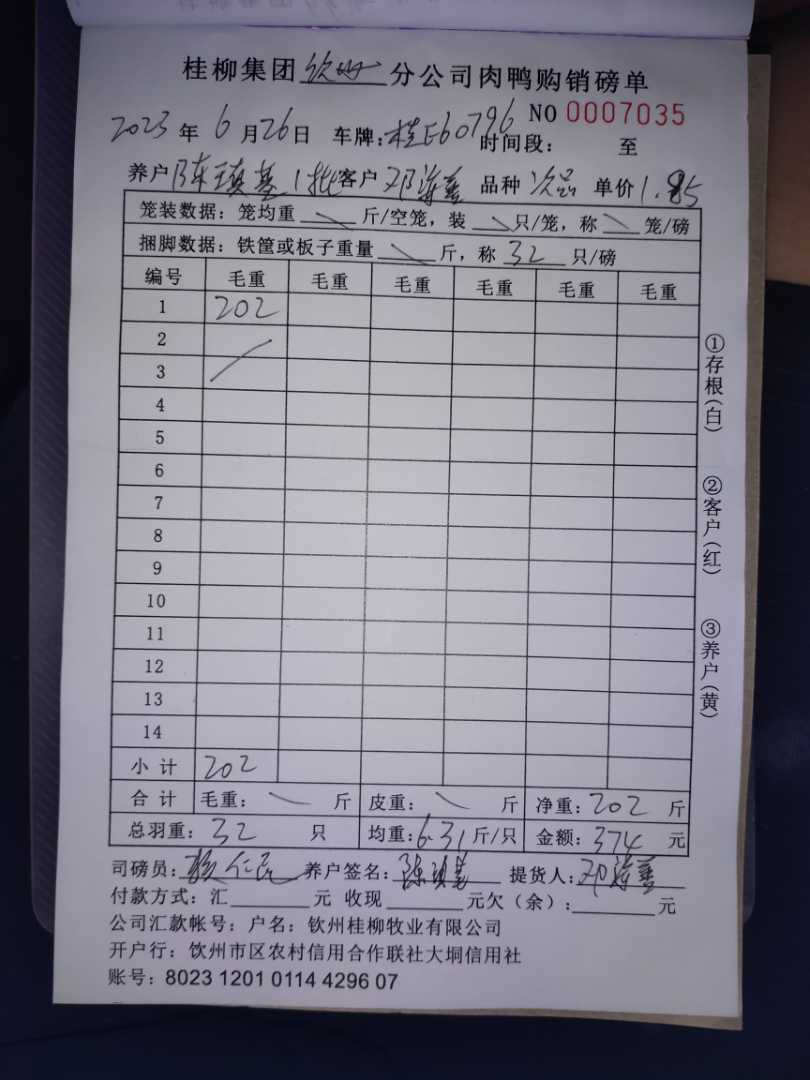 桂柳集团钦州分公司肉鸭购销磅单
NO 0007035
2023年6月26日 车牌:桂E60796 时间段: 至
养户 陈瑱基1批 客户 邓海益 品种 次品 单价1.85
笼装数据:笼均重 斤/空笼,装 只/笼,称 笼/磅
捆脚数据:铁筐或板子重量 斤,称 32 只/磅
编号 毛重 毛重 毛重 毛重 毛重 毛重
1 202
2
3
4
5
6
7
8
9
10
11
12
13
14
小计 202
合计 毛重: 斤 皮重: 斤 净重:202 斤
总羽重:32 只 均重:6.31斤/只 金额:374 元
司磅员: 养户签名: 提货人:
付款方式:汇 元 收现 元欠(余): 元
公司汇款帐号:户名:钦州桂柳牧业有限公司
开户行:饮州市区农村信用合作联社大垌信用社
账号:8023 1201 0114 4296 07
①存根(白)
②客户(红)
③养户(黄)